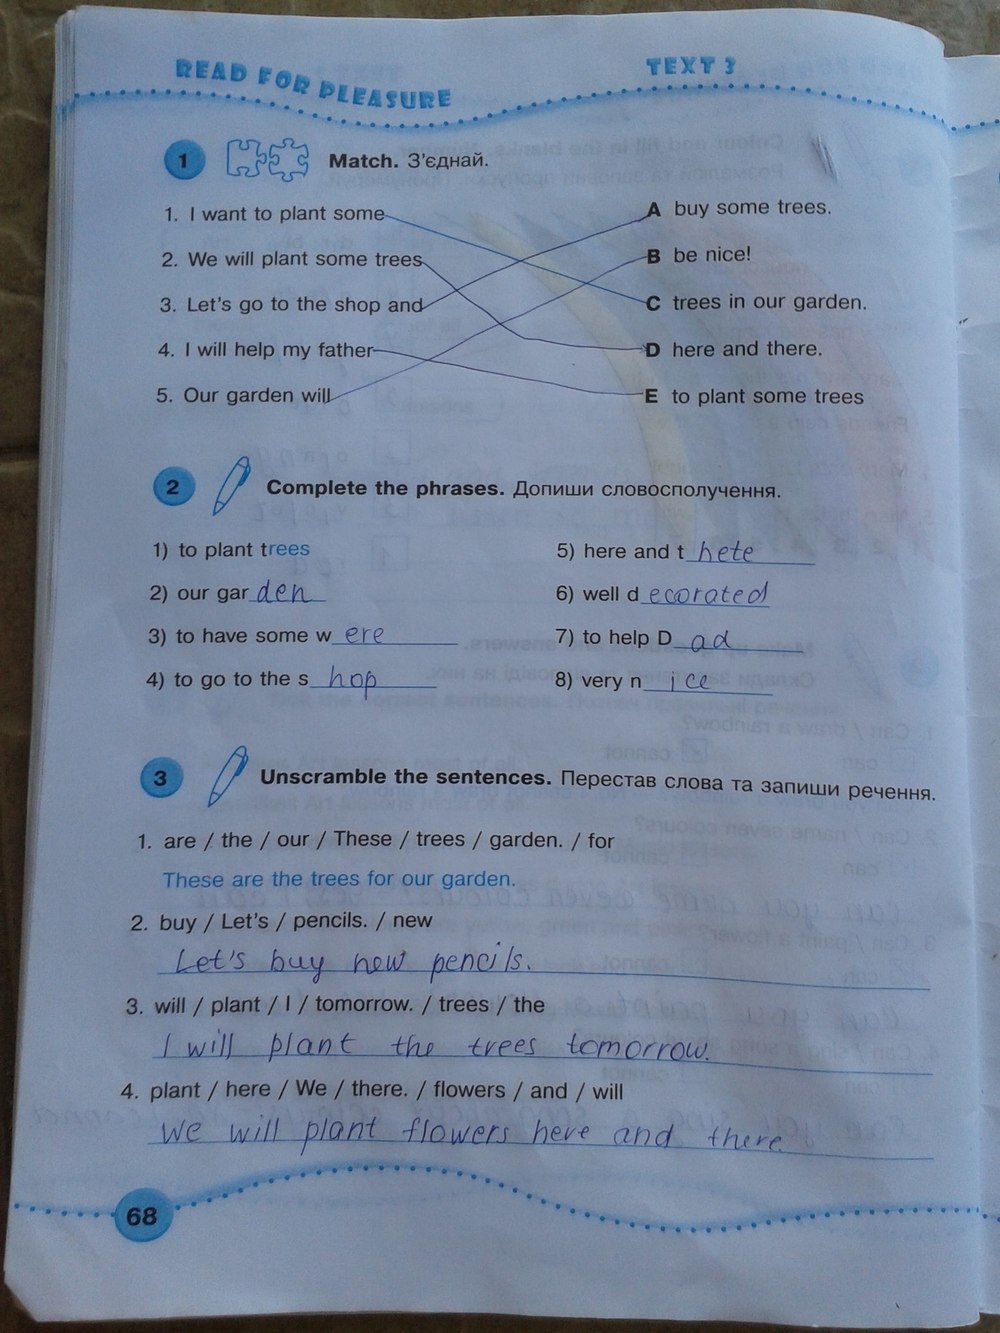 READ FOR PLEASURE TEXT 3
1 Match. З'єднай.
1. I want to plant some A buy some trees.
2. We will plant some trees B be nice!
3. Let's go to the shop and C trees in our garden.
4. I will help my father D here and there.
5. Our garden will E to plant some trees
2 Complete the phrases. Допиши словосполучення.
1) to plant trees 5) here and t hete
2) our gar den 6) well d ecorated
3) to have some w ere 7) to help D ad
4) to go to the s hop 8) very n ice
3 Unscramble the sentences. Перестав слова та запиши речення.
1. are / the / our / These / trees / garden. / for
These are the trees for our garden.
2. buy / Let's / pencils. / new
Let's buy new pencils.
3. will / plant / I / tomorrow. / trees / the
I will plant the trees tomorrow.
4. plant / here / We / there. / flowers / and / will
We will plant flowers here and there.
68